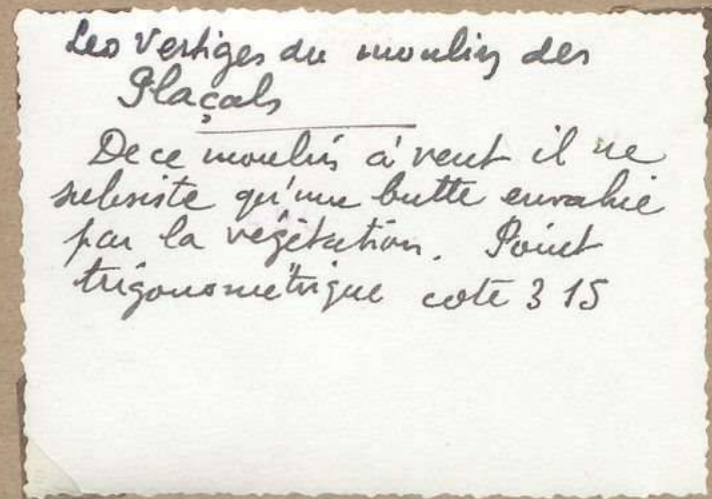 Les Vestiges du moulin des
Plaçals
De ce moulin à vent il ne
subsiste qu'une butte envahie
par la végétation. Point
trigonométrique cote 315